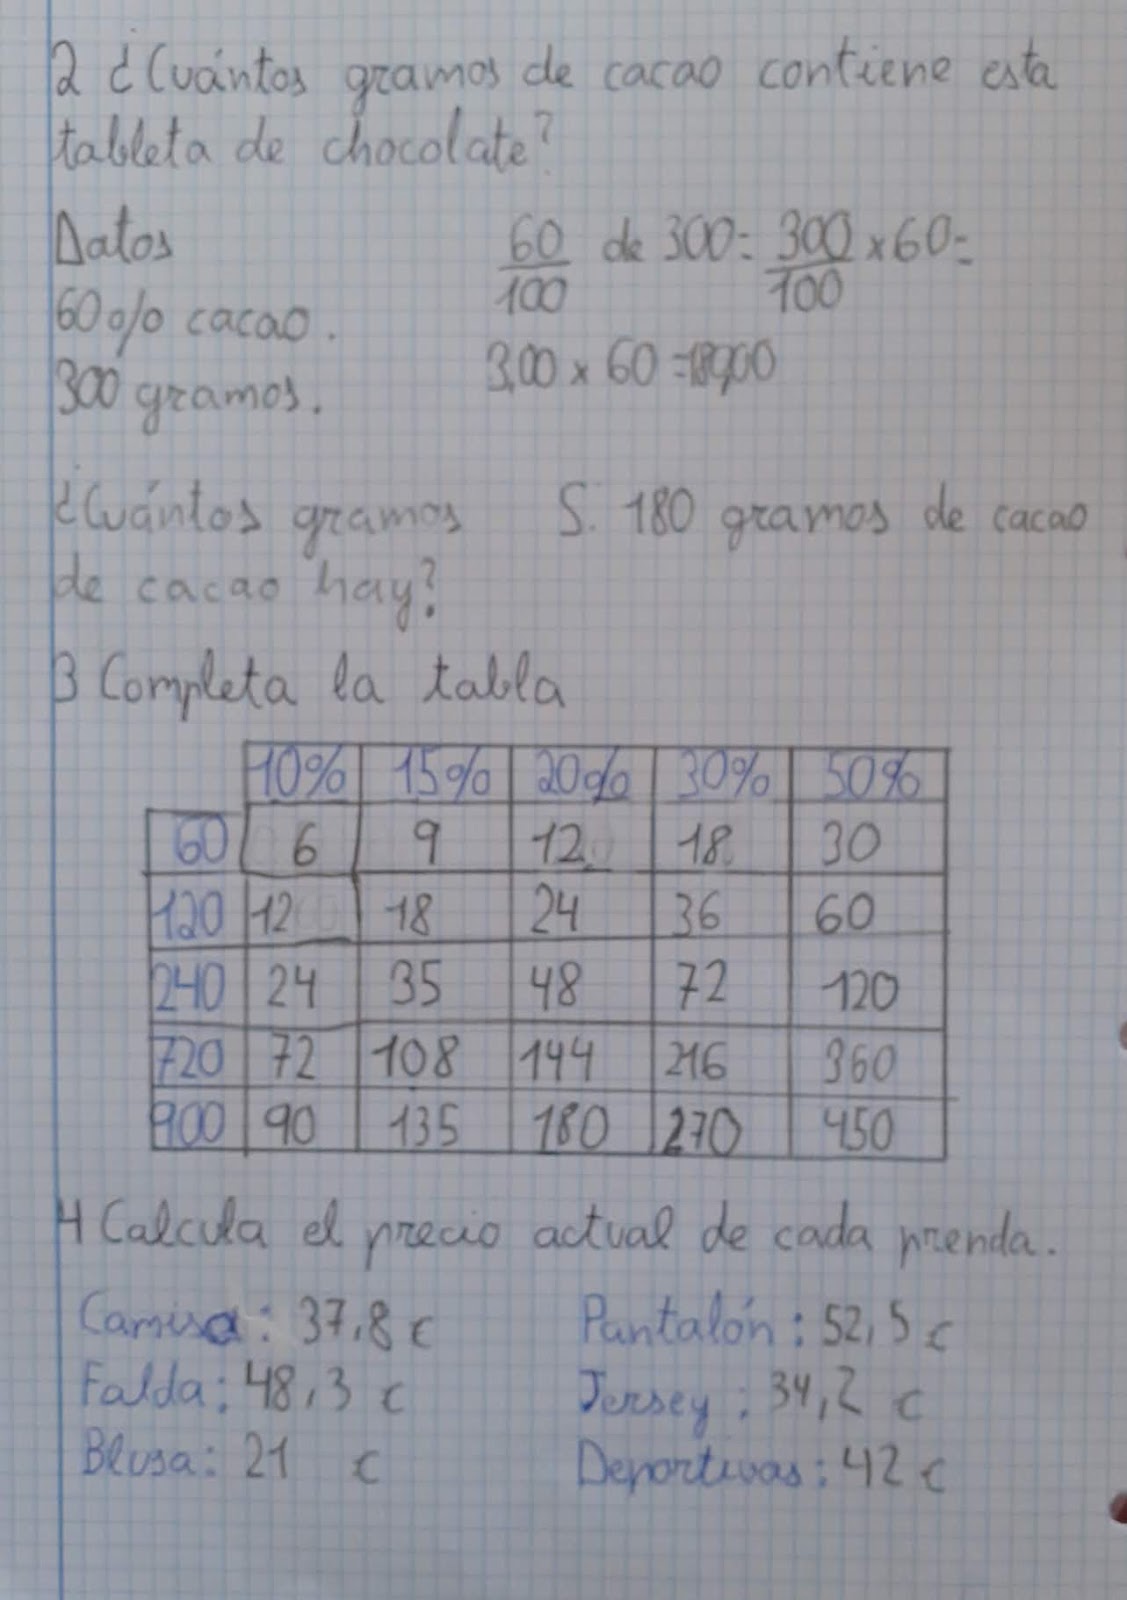 2 ¿Cuántos gramos de cacao contiene esta
tableta de chocolate?
Datos
60% cacao.
300 gramos.
60/100 de 300 = 300/100 x 60 =
3,00 x 60 = 180,00
¿Cuántos gramos
de cacao hay?
S: 180 gramos de cacao
3 Completa la tabla
10% 15% 20% 30% 50%
60 6 9 12 18 30
120 12 18 24 36 60
240 24 35 48 72 120
720 72 108 144 216 360
900 90 135 180 270 450
4 Calcula el precio actual de cada prenda.
Camisa: 37,8 € Pantalón: 52,5 €
Falda: 48,3 € Jersey: 34,2 €
Blusa: 21 € Deportivas: 42 €